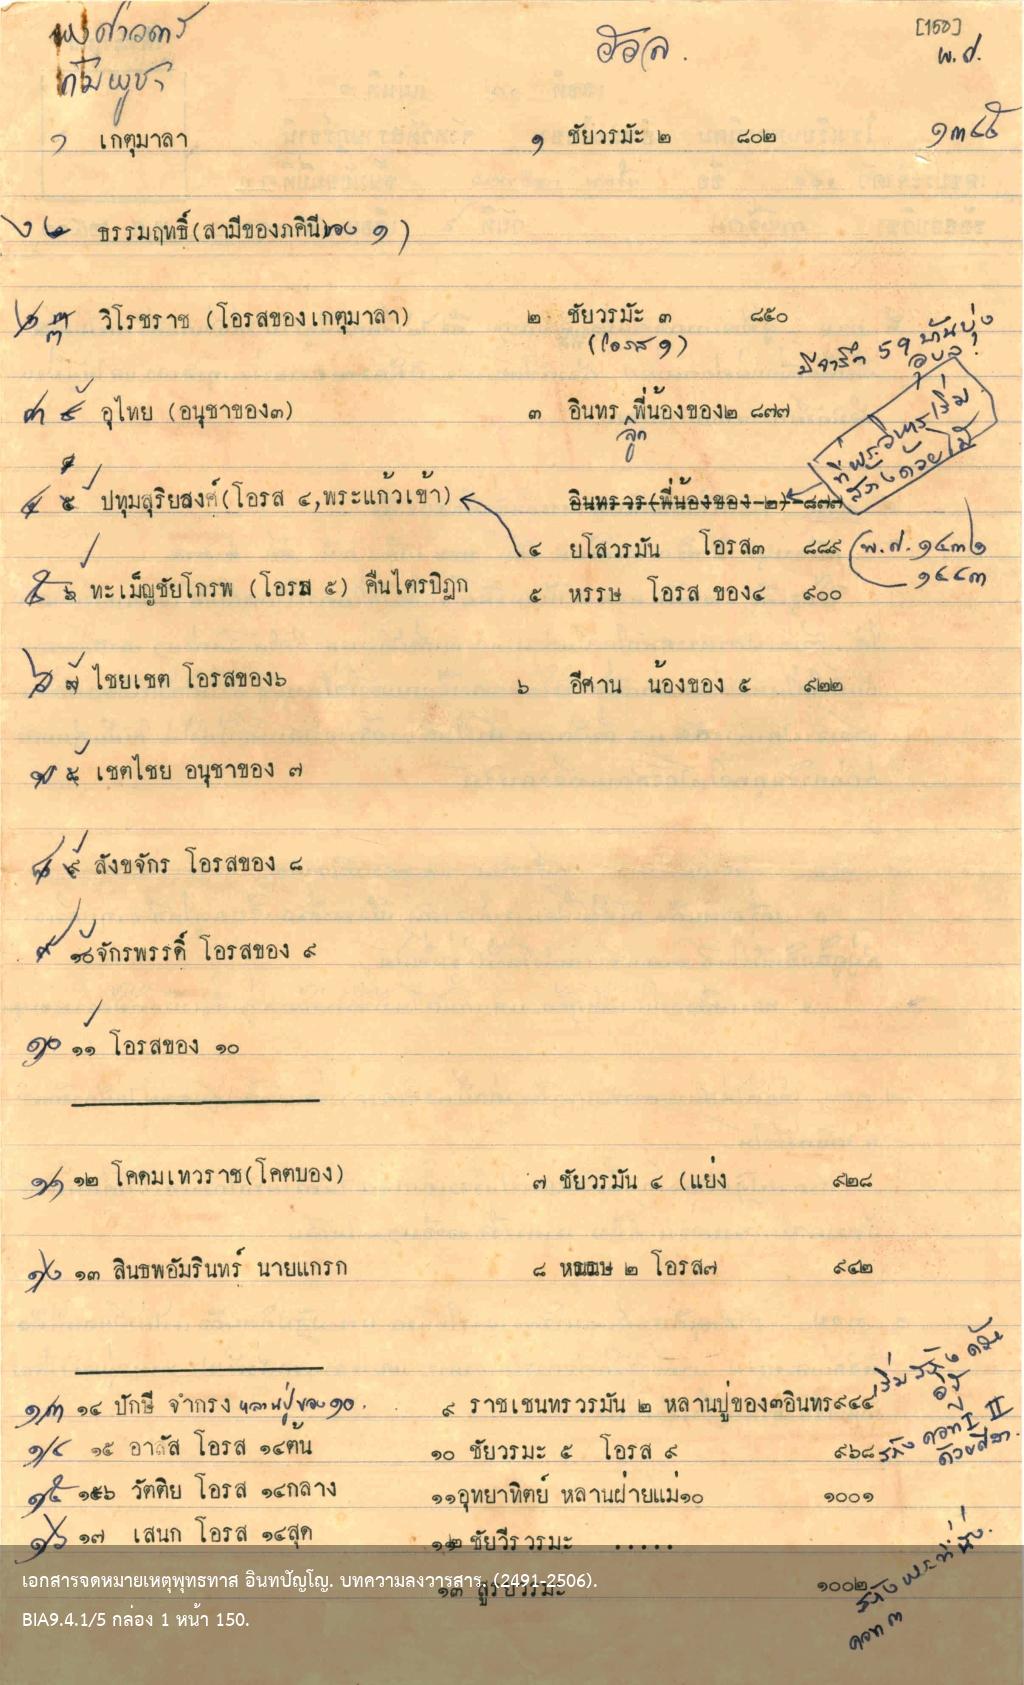 พงศาวดาร ฮอล. [150]
กัมพูชา พ.ศ.
๑ เกตุมาลา ๑ ชัยวรมัะ ๒ ๘๐๒ ๑๓๔๕
๒ ธรรมฤทธิ์(สามีของภคินีของ ๑)
๓ วิโรชราช (โอรสของเกตุมาลา) ๒ ชัยวรมัะ ๓ ๘๕๐
(โอรส ๑)
มีจารึก 59
อุบล.
๔ อุไทย (อนุชาของ๓) ๓ อินทร พี่น้องของ๒ ๘๗๗
ลูก
ที่พระวิหารเริ่ม
สร้างด้วยไม้
๕ ปทุมสุริยสงศ์(โอรส ๔,พระแก้วเข้า) อินทรวร(พี่น้องของ ๒) ๘๗๗
๔ ยโสวรมัน โอรส๓ ๘๘๙ (พ.ศ. ๑๔๓๒
๑๔๔๓
๖ ทะเม็ญชัยโกรพ (โอรส ๕) คืนไตรปิฎก ๕ หรรษ โอรส ของ๔ ๙๐๐
๗ ไชยเชต โอรสของ๖ ๖ อีศาน น้องของ ๕ ๙๒๒
๘ เชตไชย อนุชาของ ๗
๙ สังขจักร โอรสของ ๘
๑๐ จักรพรรดิ์ โอรสของ ๙
๑๐ ๑๑ โอรสของ ๑๐
๑๑ ๑๒ โคดมเทวราช(โคตบอง) ๗ ชัยวรมัน ๔ (แย่ง ๙๒๘
๑๒ ๑๓ สินธพอัมรินทร์ นายแกรก ๘ หรรษ ๒ โอรส๗ ๙๔๒
๑๓ ๑๔ ปักษี จำกรง หลานปู่ของ ๑๐. ๙ ราชเชนทรวรมัน ๒ หลานปู่ของ๓อินทร๙๔๔
เริ่มสร้าง ด้วย
อิฐ
๑๔ ๑๕ อาสัส โอรส ๑๔ต้น ๑๐ ชัยวรมะ ๕ โอรส ๙ ๙๖๘
สร้าง คอท I II
ด้วยศิลา.
๑๕ ๑๖ วัตติย โอรส ๑๔กลาง ๑๑อุทยาทิตย์ หลานฝ่ายแม่๑๐ ๑๐๐๑
๑๖ ๑๗ เสนก โอรส ๑๔สุด ๑๒ ชัยวีรวรมะ .....
๑๓ สูรยวรมะ ๑๐๐๒
สร้างพระที่นั่ง.
คอท ๓
เอกสารจดหมายเหตุพุทธทาส อินทปัญโญ. บทความลงวารสาร. (2491-2506).
BIA9.4.1/5 กล่อง 1 หน้า 150.